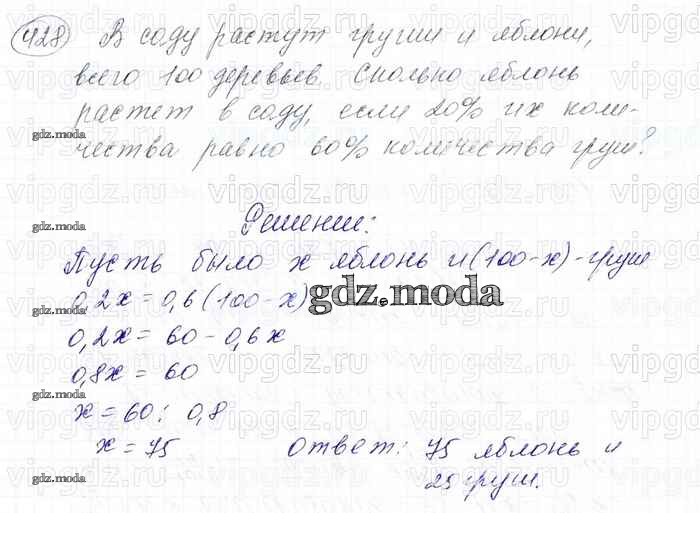 428 В саду растут груши и яблони,
всего 100 деревьев. Сколько яблонь
растет в саду, если 20% их коли-
gdz.moda
чества равно 60% количества груш?
Решение:
gdz.moda
Пусть было x яблонь и (100-x) - груш
0,2x = 0,6 (100-x)
gdz.moda
0,2x = 60 - 0,6x
0,8x = 60
gdz.moda
x = 60 : 0,8
x = 75
Ответ: 75 яблонь и
gdz.moda
25 груш.
gdz.moda
vipgdz.ru